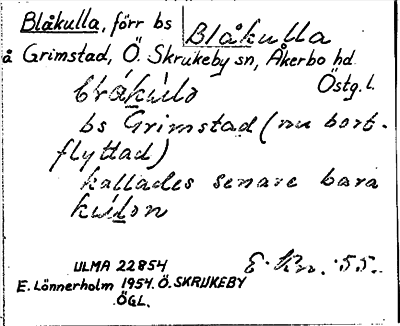 Blåkulla, förr bs Blåkulla
å Grimstad, Ö. Skrukeby sn, Åkerbo hd
Östg. l.
bs Grimstad (nu bort-
flyttad)
kallades senare bara
ULMA 22854
E. Lönnerholm 1954. Ö. SKRUKEBY
ÖGL.
E. Kn. 55.